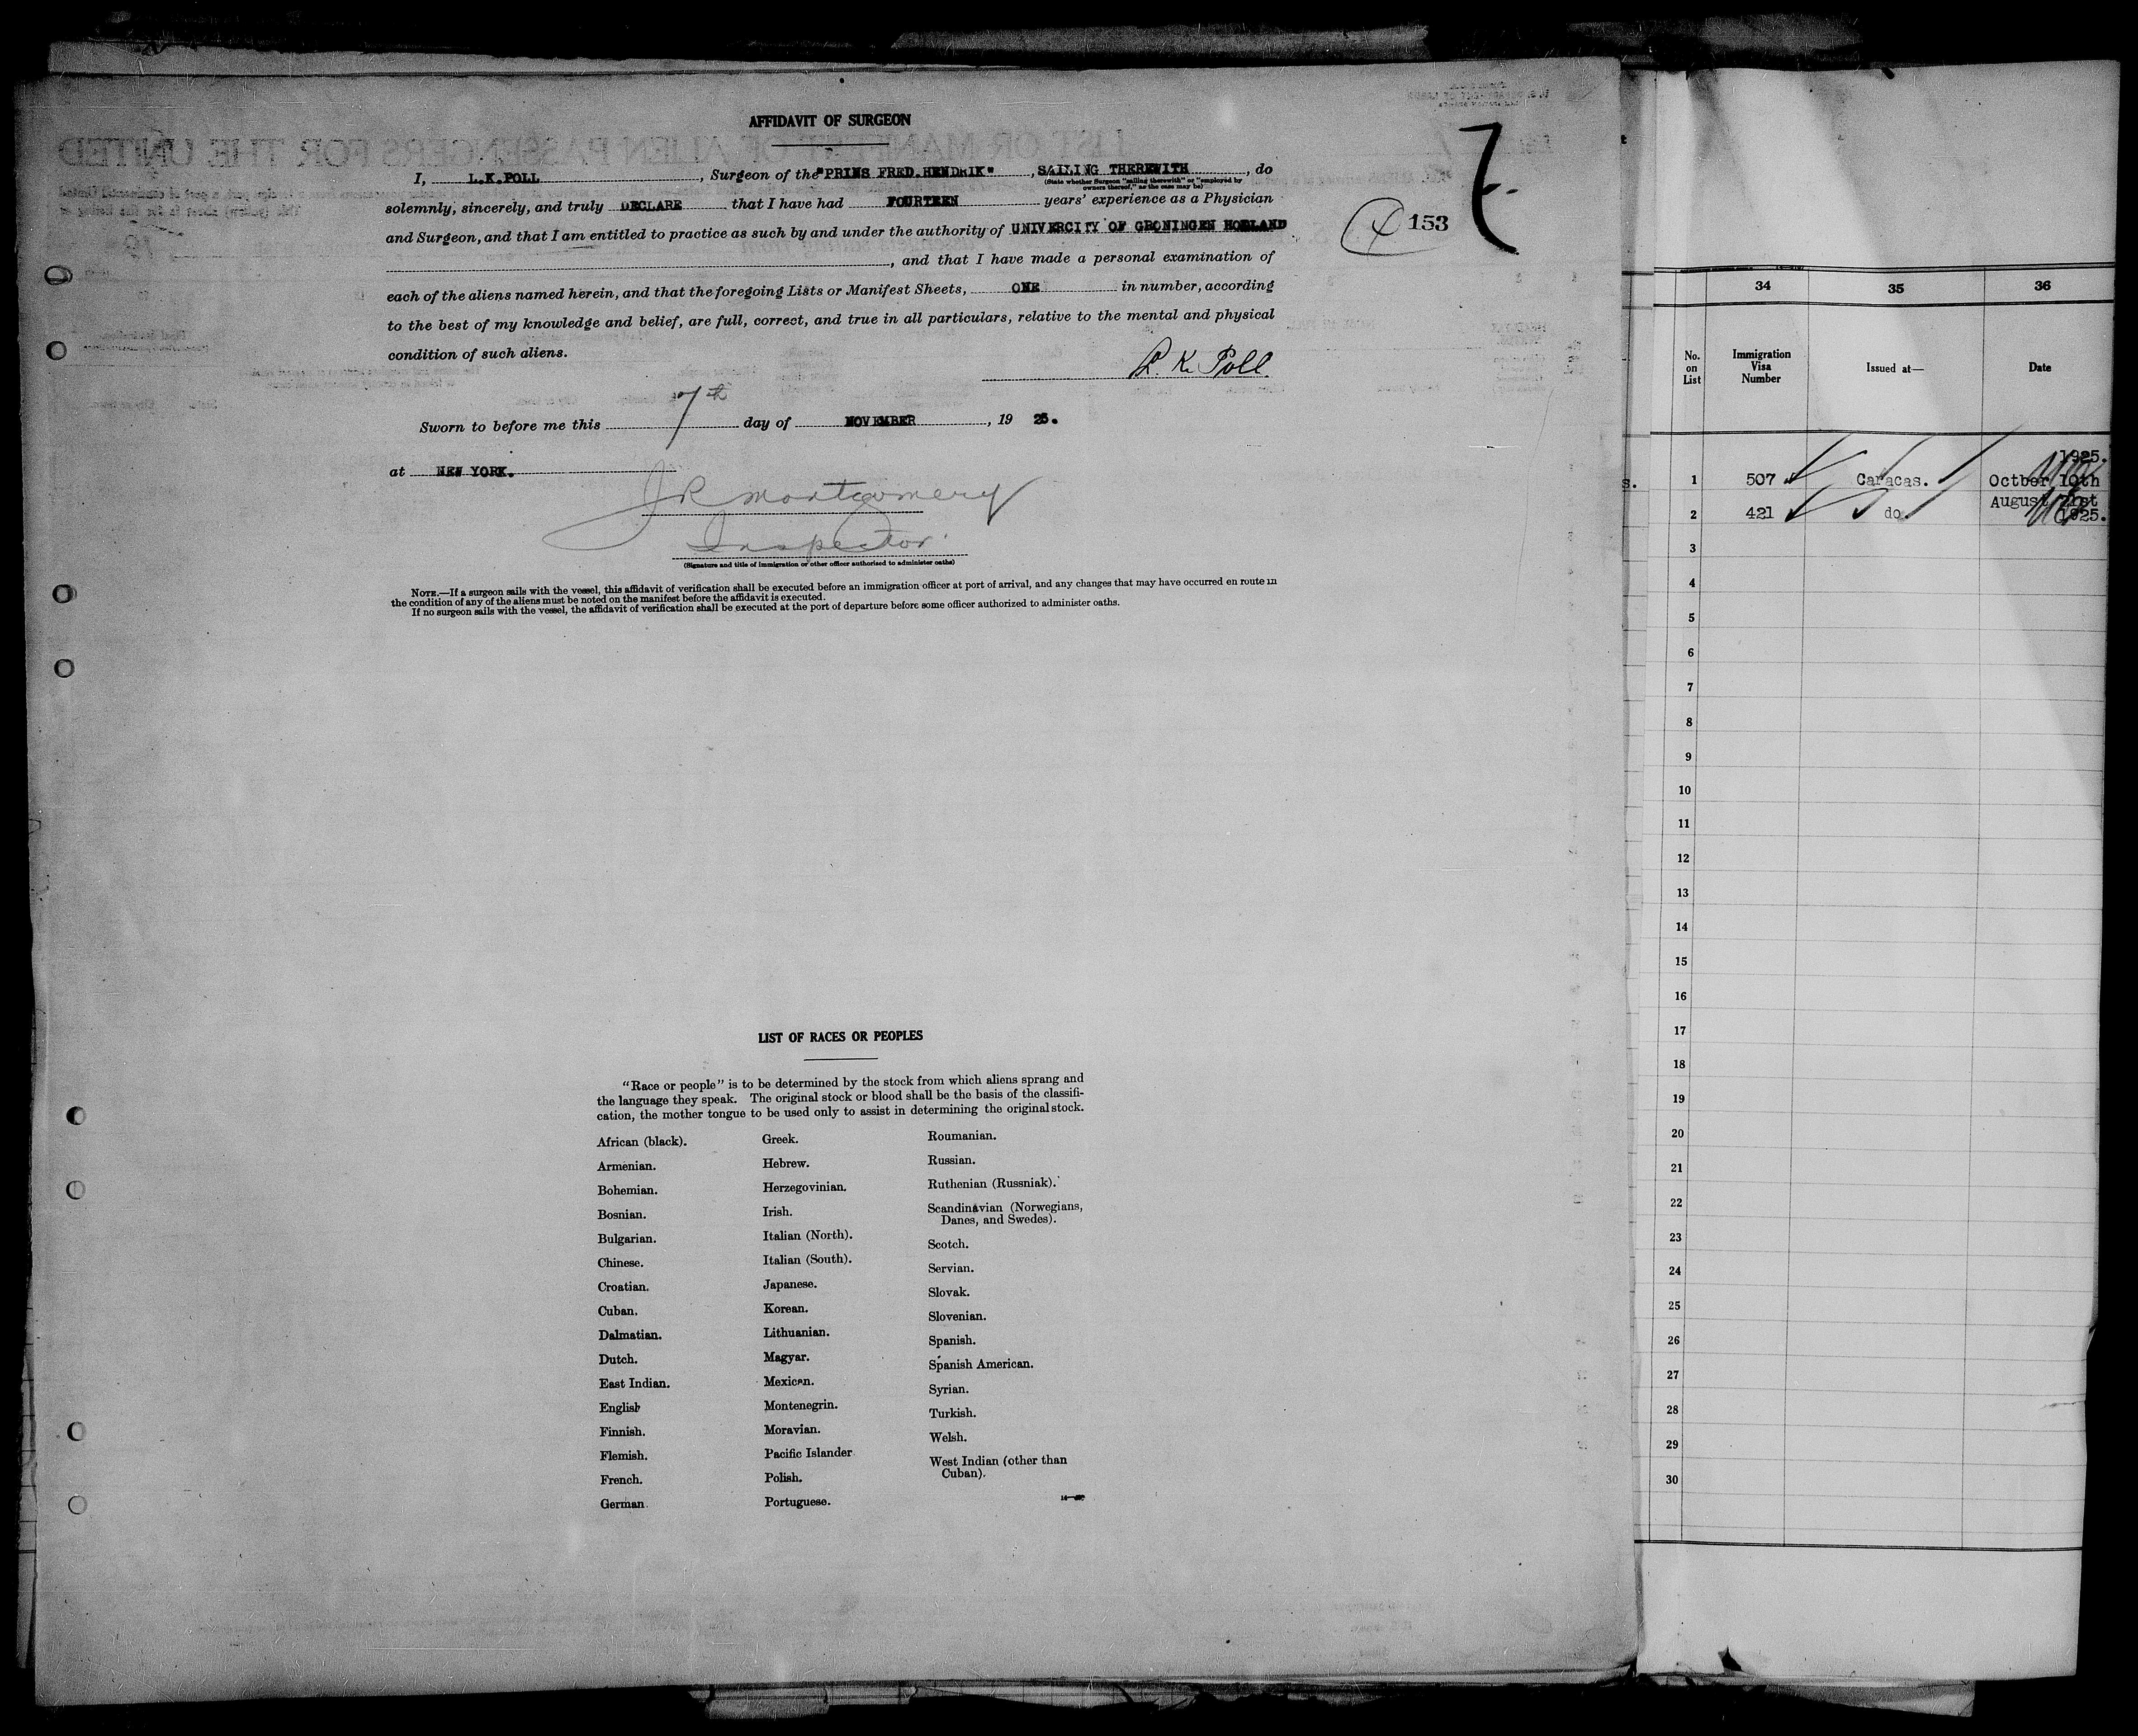 AFFIDAVIT OF SURGEON
I, L.K.POLL, Surgeon of the "PRINS FRED.HENDRIK", SAILING THEREWITH, do
(State whether Surgeon "sailing therewith" or "employed by
owners thereof," as the case may be)
solemnly, sincerely, and truly DECLARE that I have had FOURTEEN years' experience as a Physician
and Surgeon, and that I am entitled to practice as such by and under the authority of UNIVERCITY OF GRONINGEN HOLLAND
, and that I have made a personal examination of
each of the aliens named herein, and that the foregoing Lists or Manifest Sheets, ONE in number, according
to the best of my knowledge and belief, are full, correct, and true in all particulars, relative to the mental and physical
condition of such aliens.
L. K. Poll
Sworn to before me this 7th day of NOVEMBER, 19 25.
at NEW YORK.
J R Montgomery
Inspector
(Signature and title of immigration or other officer authorized to administer oaths)
NOTE.—If a surgeon sails with the vessel, this affidavit of verification shall be executed before an immigration officer at port of arrival, and any changes that may have occurred en route in
the condition of any of the aliens must be noted on the manifest before the affidavit is executed.
If no surgeon sails with the vessel, the affidavit of verification shall be executed at the port of departure before some officer authorized to administer oaths.
153
7-
LIST OF RACES OR PEOPLES
"Race or people" is to be determined by the stock from which aliens sprang and
the language they speak. The original stock or blood shall be the basis of the classifi-
cation, the mother tongue to be used only to assist in determining the original stock.
African (black).
Armenian.
Bohemian.
Bosnian.
Bulgarian.
Chinese.
Croatian.
Cuban.
Dalmatian.
Dutch.
East Indian.
English
Finnish.
Flemish.
French.
German.
Greek.
Hebrew.
Herzegovinian.
Irish.
Italian (North).
Italian (South).
Japanese.
Korean.
Lithuanian.
Magyar.
Mexican.
Montenegrin.
Moravian.
Pacific Islander
Polish.
Portuguese.
Roumanian.
Russian.
Ruthenian (Russniak).
Scandinavian (Norwegians,
Danes, and Swedes).
Scotch.
Servian.
Slovak.
Slovenian.
Spanish.
Spanish American.
Syrian.
Turkish.
Welsh.
West Indian (other than
Cuban).
34 35 36
No.
on
List
Immigration
Visa
Number
Issued at—
Date
1925.
1 507 Caracas. Octber 10th
August 21st
2 421 do 1925.
3
4
5
6
7
8
9
10
11
12
13
14
15
16
17
18
19
20
21
22
23
24
25
26
27
28
29
30